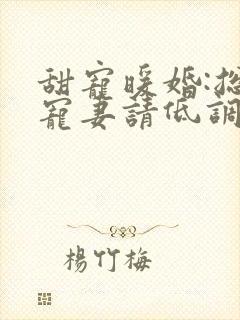 甜寵暖婚:總
寵妻請低調
楊竹梅